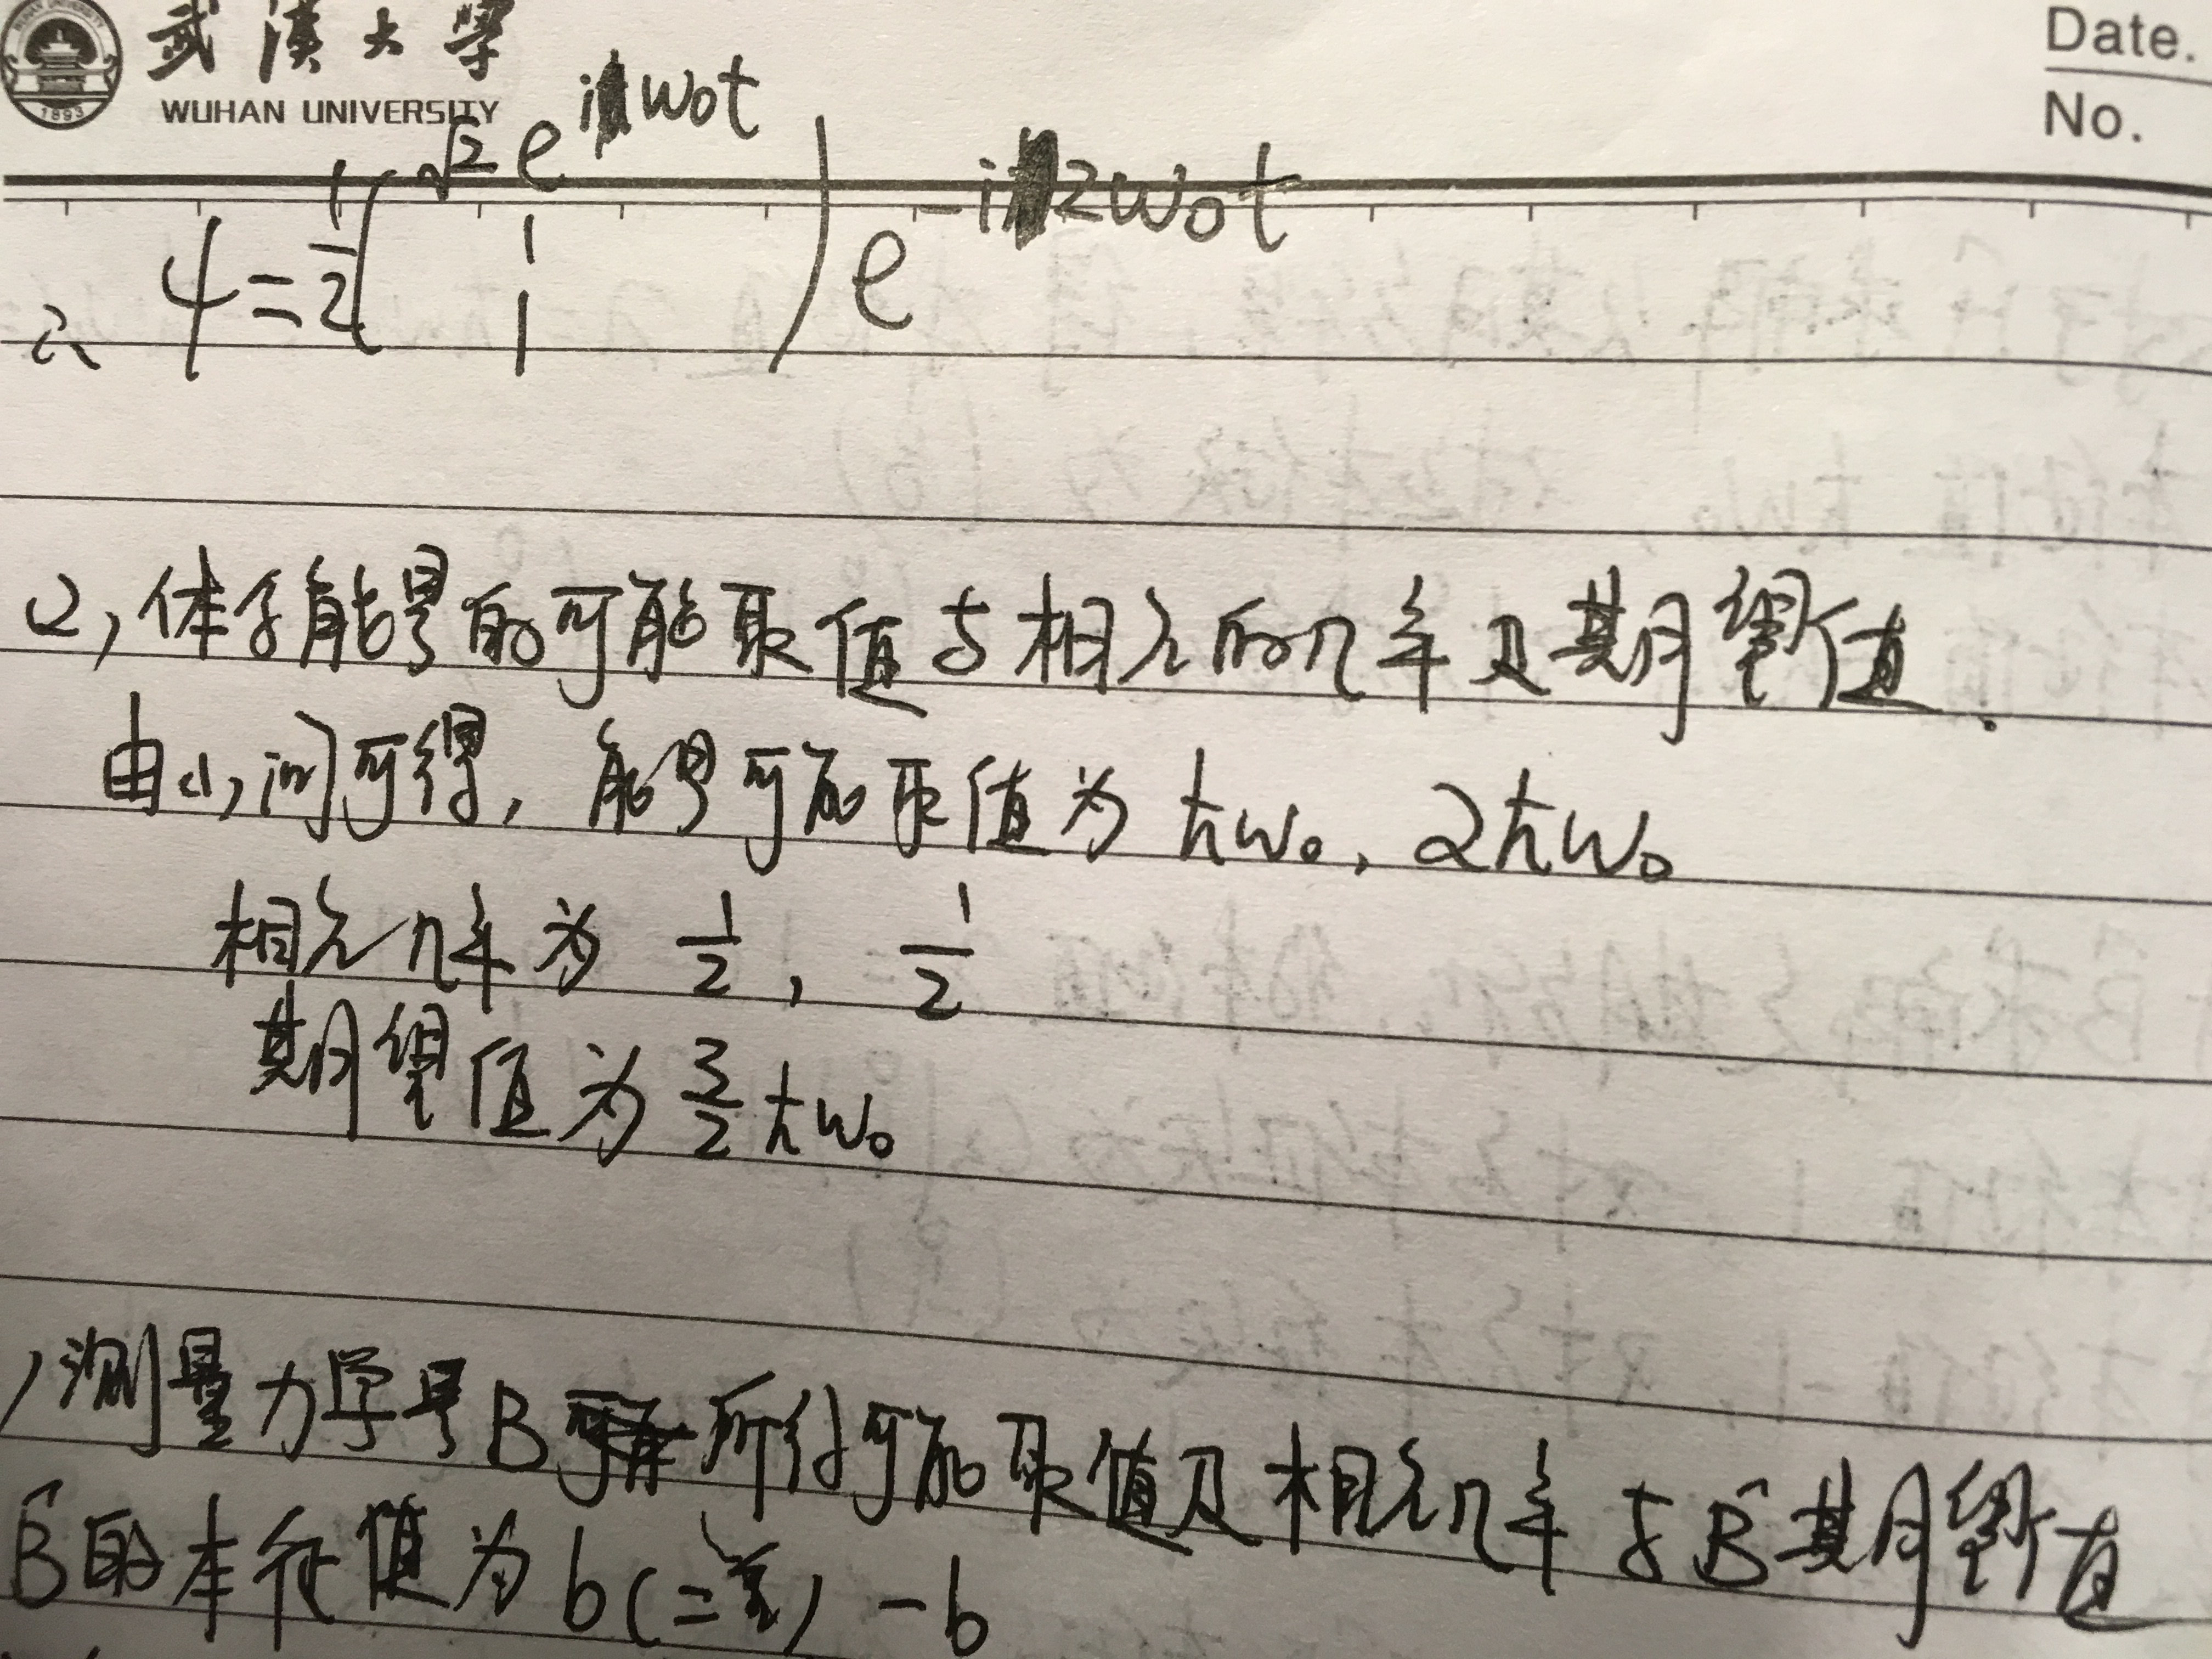 武漢大學
WUHAN UNIVERSITY
1893
Date.
No.
∴ ψ = 1/2 ( √2 e^{iω₀t} 1 1 ) e^{-i2ω₀t}
2, 体系能量的可能取值与相应的几率及期望值.
由(1)问可得, 能量可能取值为 ħω₀, 2ħω₀
相应几率为 1/2, 1/2
期望值为 3/2 ħω₀
)测量力学量B所得可能取值及相应几率与B̂期望值
B̂的本征值为 b(二重) -b